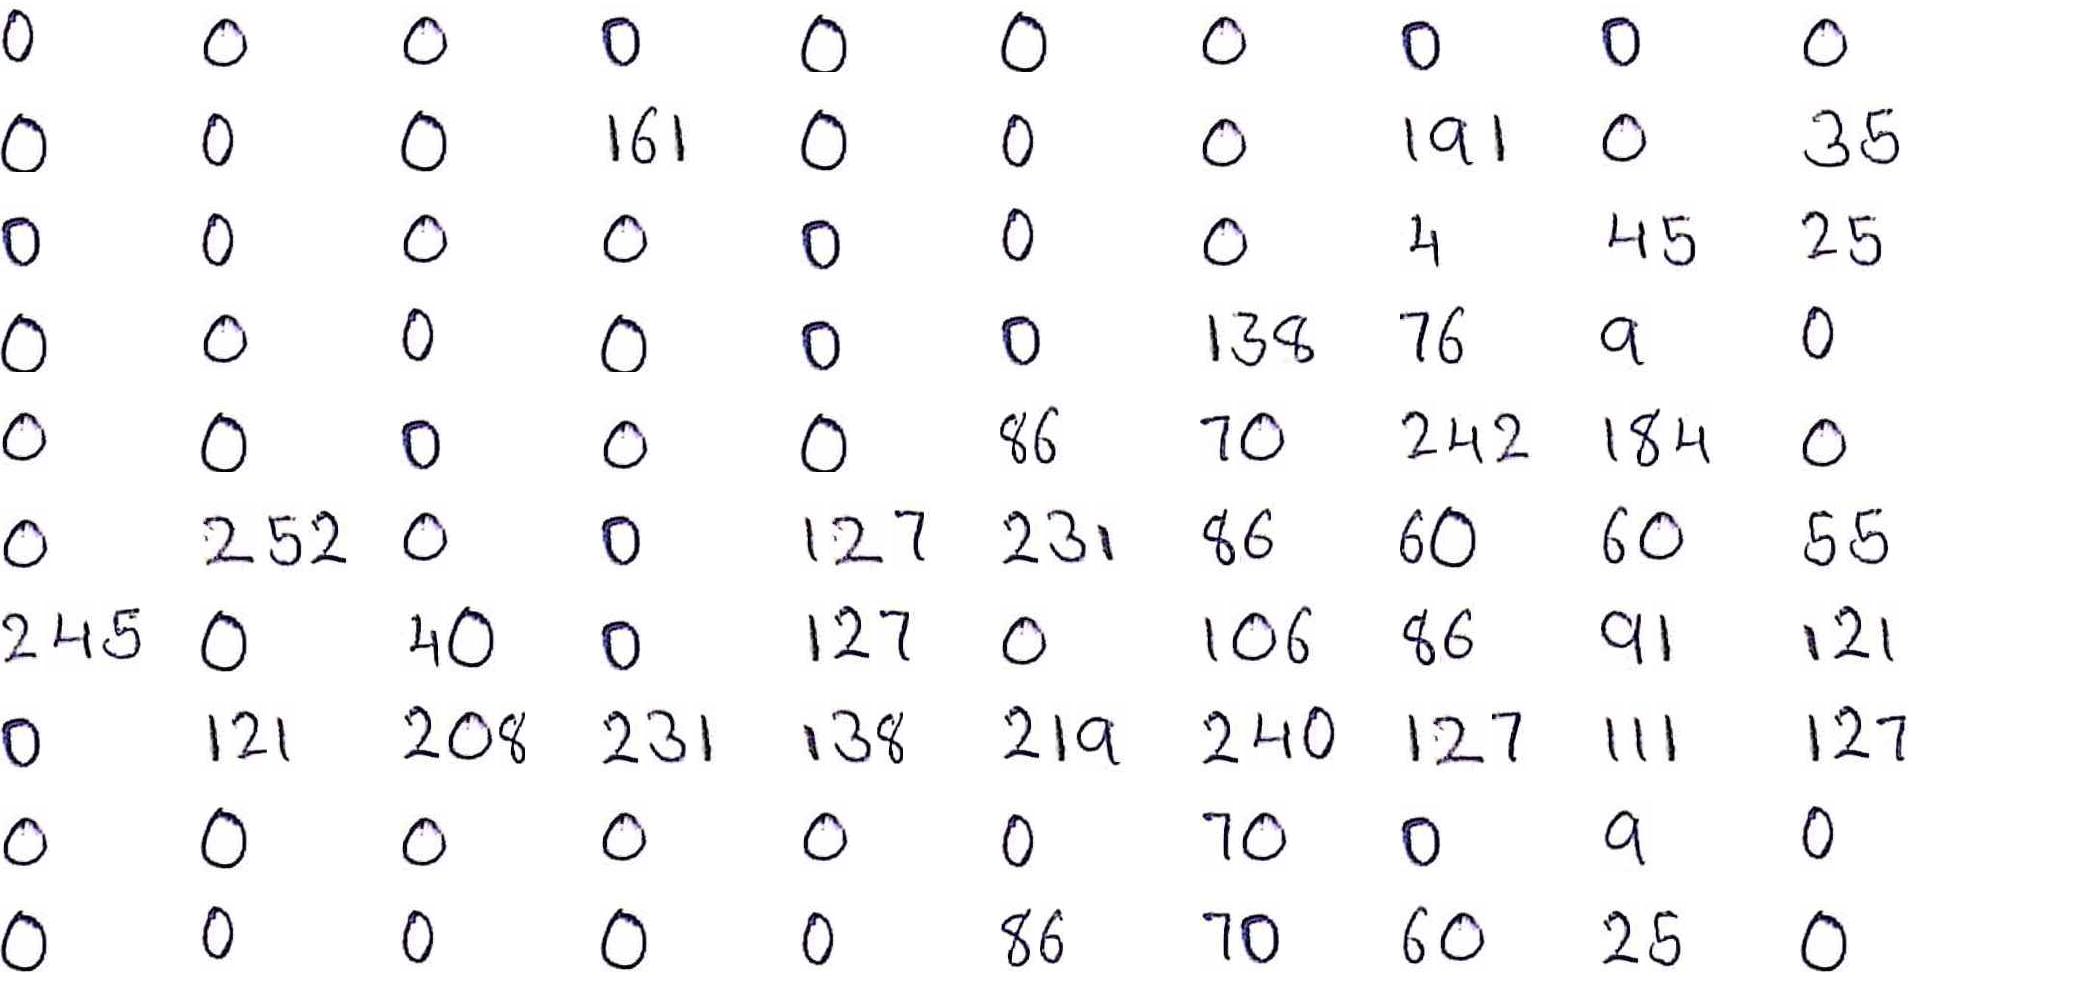 0 0 0 0 0 0 0 0 0 0
0 0 0 161 0 0 0 191 0 35
0 0 0 0 0 0 0 4 45 25
0 0 0 0 0 0 138 76 9 0
0 0 0 0 0 86 70 242 184 0
0 252 0 0 127 231 86 60 60 55
245 0 40 0 127 0 106 86 91 121
0 121 208 231 138 219 240 127 111 127
0 0 0 0 0 0 70 0 9 0
0 0 0 0 0 86 70 60 25 0